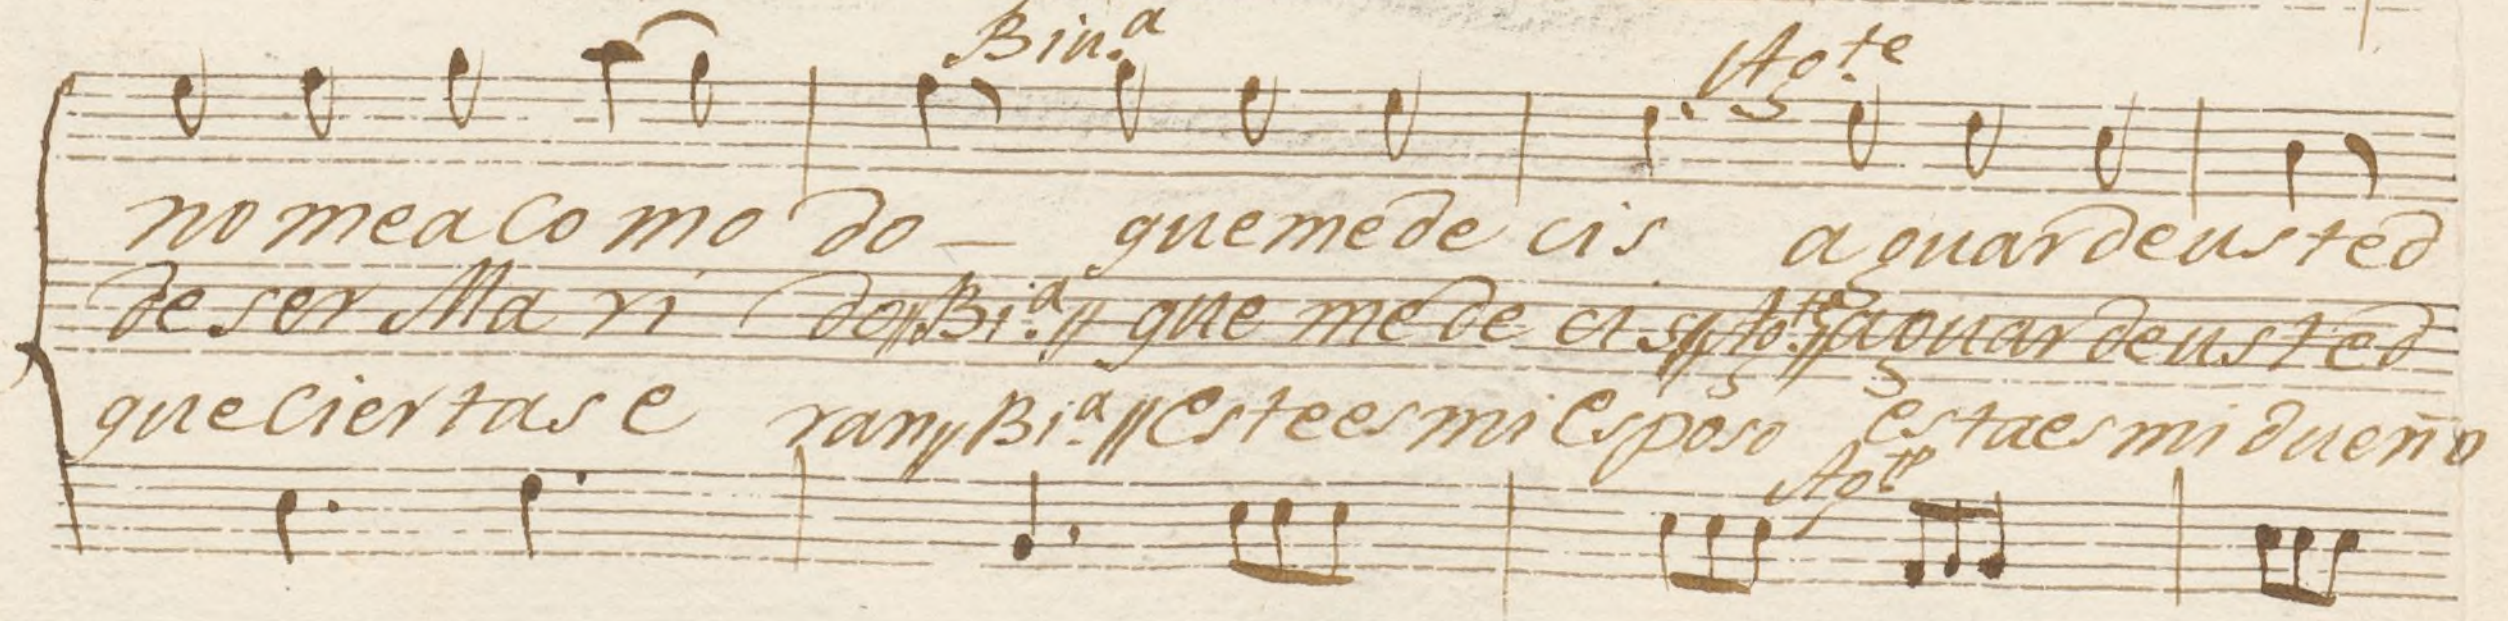 Bin.a Ag.te
no me a co mo do — que me de cis aguarde usted
de ser Ma ri do // Bi.a // que me de cis // Ag.te // aguarde usted
que ciertas e ran // Bi.a // Este es mi Esposo esta es mi dueño
Ag.te